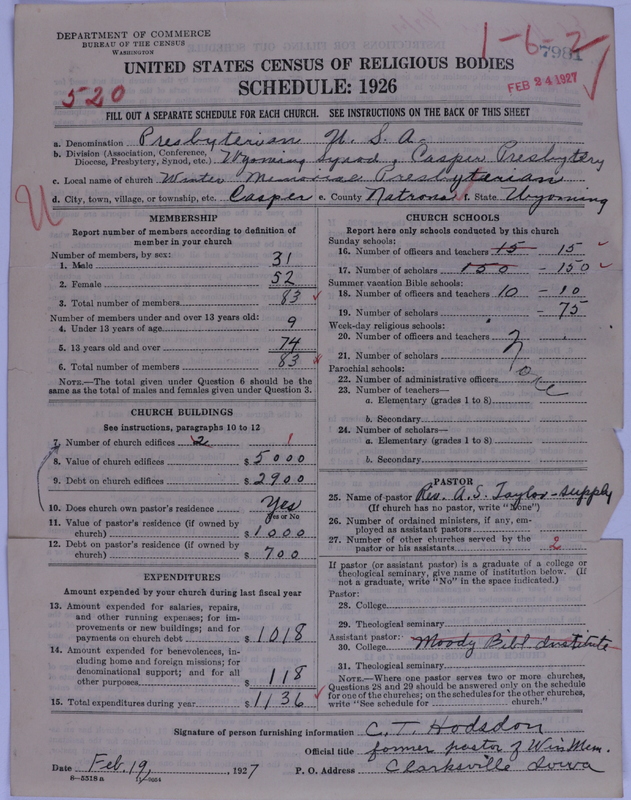 DEPARTMENT OF COMMERCE
BUREAU OF THE CENSUS
WASHINGTON
1-6-2
7981
UNITED STATES CENSUS OF RELIGIOUS BODIES
SCHEDULE: 1926
FEB 24 1927
520
FILL OUT A SEPARATE SCHEDULE FOR EACH CHURCH. SEE INSTRUCTIONS ON THE BACK OF THIS SHEET
a. Denomination Presbyterian U. S. A.
b. Division (Association, Conference, Diocese, Presbytery, Synod, etc.) Wyoming Synod, Casper Presbytery
c. Local name of church Winter Memorial Presbytarian
d. City, town, village, or township, etc. Casper e. County Natrona f. State Wyoming
MEMBERSHIP
Report number of members according to definition of
member in your church
Number of members, by sex:
1. Male 31
2. Female 52
3. Total number of members 83
Number of members under and over 13 years old:
4. Under 13 years of age 9
5. 13 years old and over 74
6. Total number of members 83
NOTE.—The total given under Question 6 should be the
same as the total of males and females given under Question 3.
CHURCH BUILDINGS
See instructions, paragraphs 10 to 12
7. Number of church edifices 2 1
8. Value of church edifices $ 5000
9. Debt on church edifices $ 2900
10. Does church own pastor's residence Yes
Yes or No
11. Value of pastor's residence (if owned by
church) $ 1000
12. Debt on pastor's residence (if owned by
church) $ 700
EXPENDITURES
Amount expended by your church during last fiscal year
13. Amount expended for salaries, repairs,
and other running expenses; for im-
provements or new buildings; and for
payments on church debt $ 1018
14. Amount expended for benevolences, in-
cluding home and foreign missions; for
denominational support; and for all
other purposes $ 118
15. Total expenditures during year $ 1136
CHURCH SCHOOLS
Report here only schools conducted by this church
Sunday schools:
16. Number of officers and teachers 15 15
17. Number of scholars 150 - 150
Summer vacation Bible schools:
18. Number of officers and teachers 10 - 10
19. Number of scholars - 75
Week-day religious schools:
20. Number of officers and teachers
21. Number of scholars
None
Parochial schools:
22. Number of administrative officers
23. Number of teachers—
a. Elementary (grades 1 to 8)
b. Secondary
24. Number of scholars—
a. Elementary (grades 1 to 8)
b. Secondary
PASTOR
25. Name of pastor Rev. A. S. Taylor - supply
(If church has no pastor, write "None")
26. Number of ordained ministers, if any, em-
ployed as assistant pastors
27. Number of other churches served by the
pastor or his assistants 2
If pastor (or assistant pastor) is a graduate of a college or
theological seminary, give name of institution below. (If
not a graduate, write "No" in the space indicated.)
Pastor:
28. College
29. Theological seminary
Assistant pastor:
30. College Moody Bibl Institute
31. Theological seminary
NOTE.—Where one pastor serves two or more churches,
Questions 28 and 29 should be answered only on the schedule
for one of the churches; on the schedules for the other churches,
write "See schedule for church."
Signature of person furnishing information C. T. Hodsdon
Official title former pastor of Win Mem.
Date Feb. 19, 1927 P. O. Address Clarksville Iowa
8—5318 a